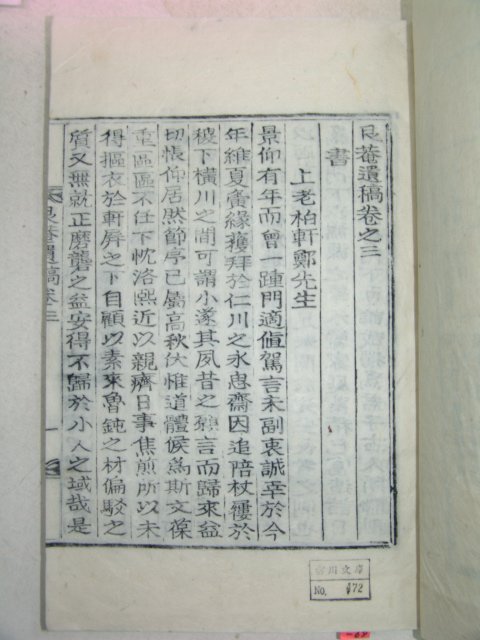 艮菴遺稿卷之三
書
上老柏軒鄭先生
景仰有年而曾一踵門適値駕言未副衷誠幸於今
年維夏夤緣獲拜於仁川之永思齋因追陪杖屨於
稷下橫川之間可謂小遂其夙昔之願言而歸來益
切悵仰居然節序已屬高秋伏惟道體候爲斯文葆
重區區不任下忱洛熙近以親癠日事焦煎所以未
得摳衣於軒屛之下自顧以素來魯鈍之材偏駁之
質又無就正磨礱之益安得不歸於小人之域哉是
艮菴遺稿卷三
一
川文庫
No. 472